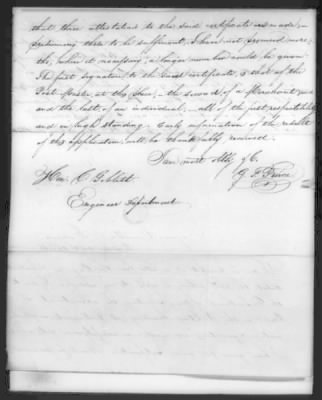 that three attestations to the said certificate are made,
presuming that to be sufficient, I have not procured more,
tho', when it necessary, a larger number could be given.
The first signature to the said certificate, is that of the
Post Master, at this place, - the second of a Merchant
and the last, of an individual, - all of the first respectability
and in high standing. Early information of the result
of this application, will be thankfully received.
I am most Obtly &c.
G. F.
Hon. C.
Engineer Department